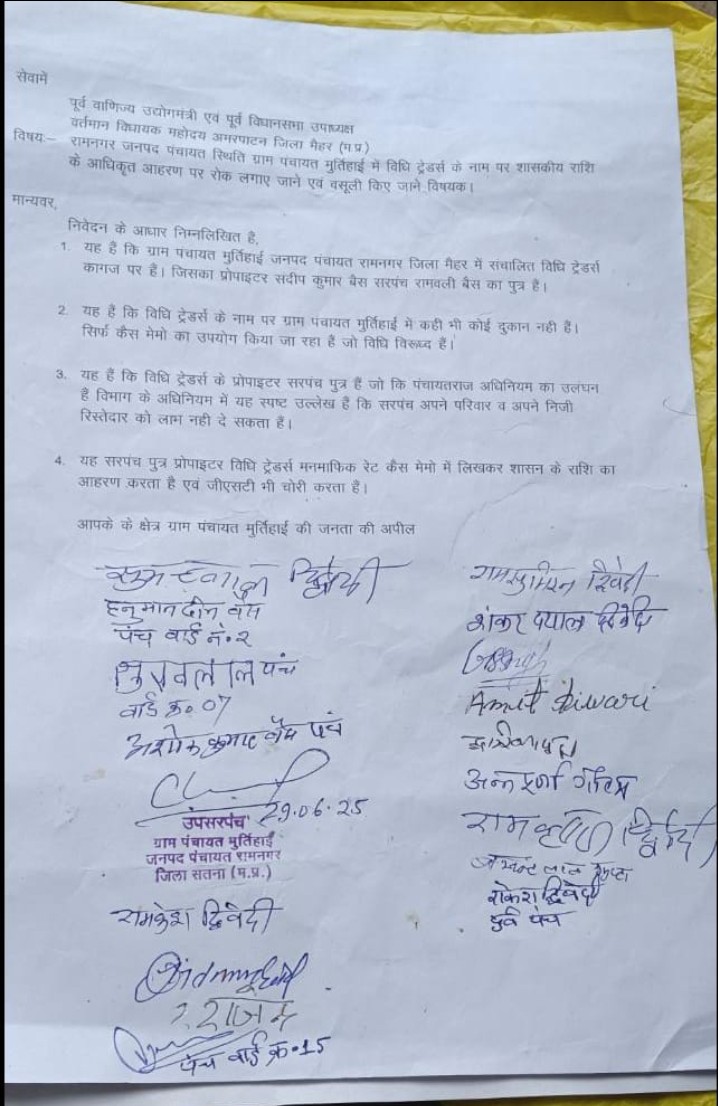 सेवामें
पूर्व वाणिज्य उद्योगमंत्री एवं पूर्व विधानसभा उपाध्यक्ष
वर्तमान विधायक महोदय अमरपाटन जिला मैहर (म.प्र.)
विषय:– रामनगर जनपद पंचायत स्थिति ग्राम पंचायत मुर्तिहाई में विधि ट्रेडर्स के नाम पर शासकीय राशि
के आधिकृत आहरण पर रोक लगाए जाने एवं वसूली किए जाने विषयक।
मान्यवर,
निवेदन के आधार निम्नलिखित है,
1. यह हैं कि ग्राम पंचायत मुर्तिहाई जनपद पंचायत रामनगर जिला मैहर में संचालित विधि ट्रेडर्स
कागज पर है। जिसका प्रोपाइटर संदीप कुमार बैस सरपंच रामवली बैस का पुत्र है।
2. यह हैं कि विधि ट्रेडर्स के नाम पर ग्राम पंचायत मुर्तिहाई में कही भी कोई दुकान नही हैं।
सिर्फ कैस मेमो का उपयोग किया जा रहा हैं जो विधि विरूध्द हैं।
3. यह हैं कि विधि ट्रेडर्स के प्रोपाइटर सरपंच पुत्र हैं जो कि पंचायतराज अधिनियम का उलंघन
हैं विभाग के अधिनियम में यह स्पष्ट उल्लेख हैं कि सरपंच अपने परिवार व अपने निजी
रिस्तेदार को लाभ नही दे सकता हैं।
4. यह सरपंच पुत्र प्रोपाइटर विधि ट्रेडर्स मनमाफिक रेट कैस मेमो में लिखकर शासन के राशि का
आहरण करता है एवं जीएसटी भी चोरी करता है।
आपके के क्षेत्र ग्राम पंचायत मुर्तिहाई की जनता की अपील
द्विवेदी
हनुमानदीन बैस
पंच वार्ड नं. २
पंच
वार्ड क्र० 07
अशोक कुमार बैस पंच
29.06.25
उपसरपंच
ग्राम पंचायत मुर्तिहाई
जनपद पंचायत रामनगर
जिला सतना (म.प्र.)
रामकेश द्विवेदी
पंच वार्ड क्र०15
द्विवेदी
शंकर दयाल द्विवेदी
Amit Diwari
अन्नपूर्णा गौतम
द्विवेदी
लाल गुप्ता
राकेश द्विवेदी
पूर्व पंच